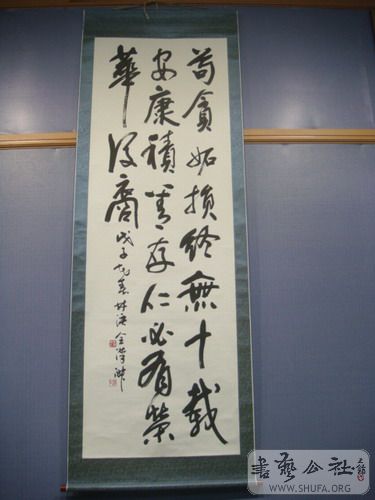 苟貪妬損終無十載
安康積善存仁必有榮
華後裔
戊子
書藝公社
WWW.SHUFA.ORG